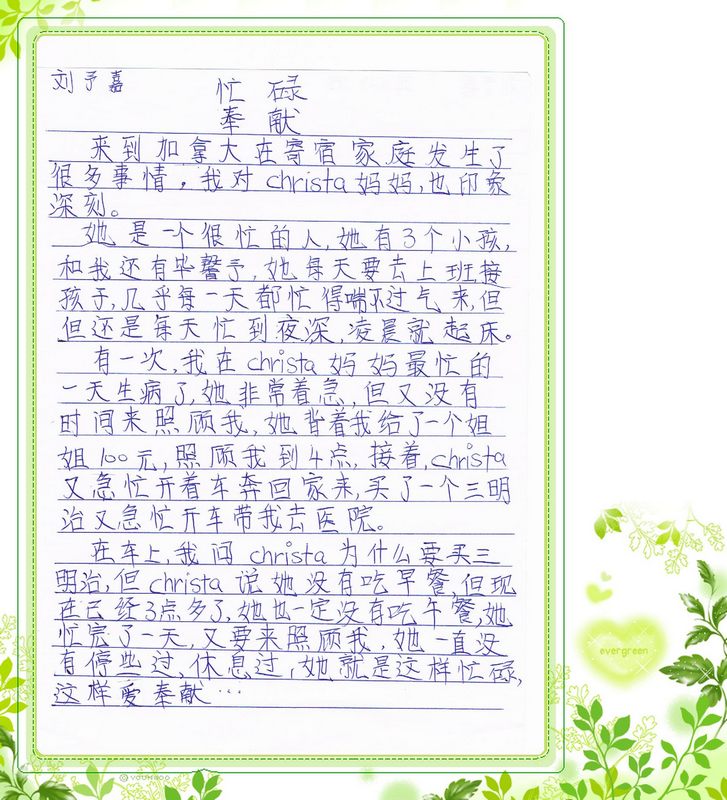 刘予嘉
忙碌
奉献
来到加拿大在寄宿家庭发生了
很多事情。我对christa妈妈,也印象
深刻。
她是一个很忙的人,她有3个小孩,
和我还有毕馨予,她每天要去上班接
孩子,几乎每一天都忙得喘不过气来,但
但还是每天忙到夜深,凌晨就起床。
有一次,我在christa妈妈最忙的
一天生病了,她非常着急,但又没有
时间来照顾我,她背着我给了一个姐
姐100元,照顾我到4点,接着,christa
又急忙开着车奔回家来,买了一个三明
治又急忙开车带我去医院。
在车上,我问christa为什么要买三
明治,但christa说她没有吃早餐,但现
在已经3点多了,她也一定没有吃午餐,她
忙完了一天,又要来照顾我,她一直没
有停些过,休息过,她就是这样忙碌,
这样爱奉献…
evergreen